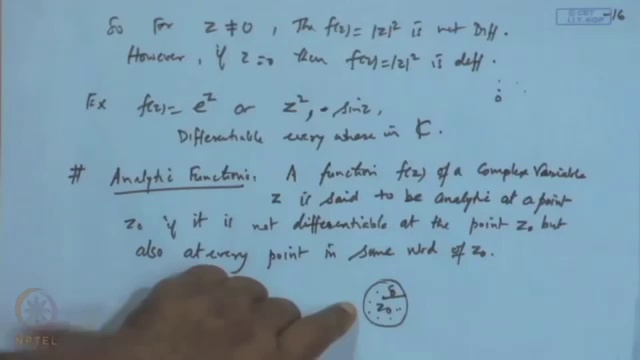 So For z ≠ 0, The f(z) = |z|² is not Diff.
However, if z=0 then f(z) = |z|² is diff.
Ex f(z) = e^z or z², sin z,
Differentiable every where in ℂ.
# Analytic Function: A function f(z) of a Complex Variable
z is said to be analytic at a point
z₀ if it is not differentiable at the point z₀ but
also at every point in some nbd of z₀.
δ
z₀
NPTEL